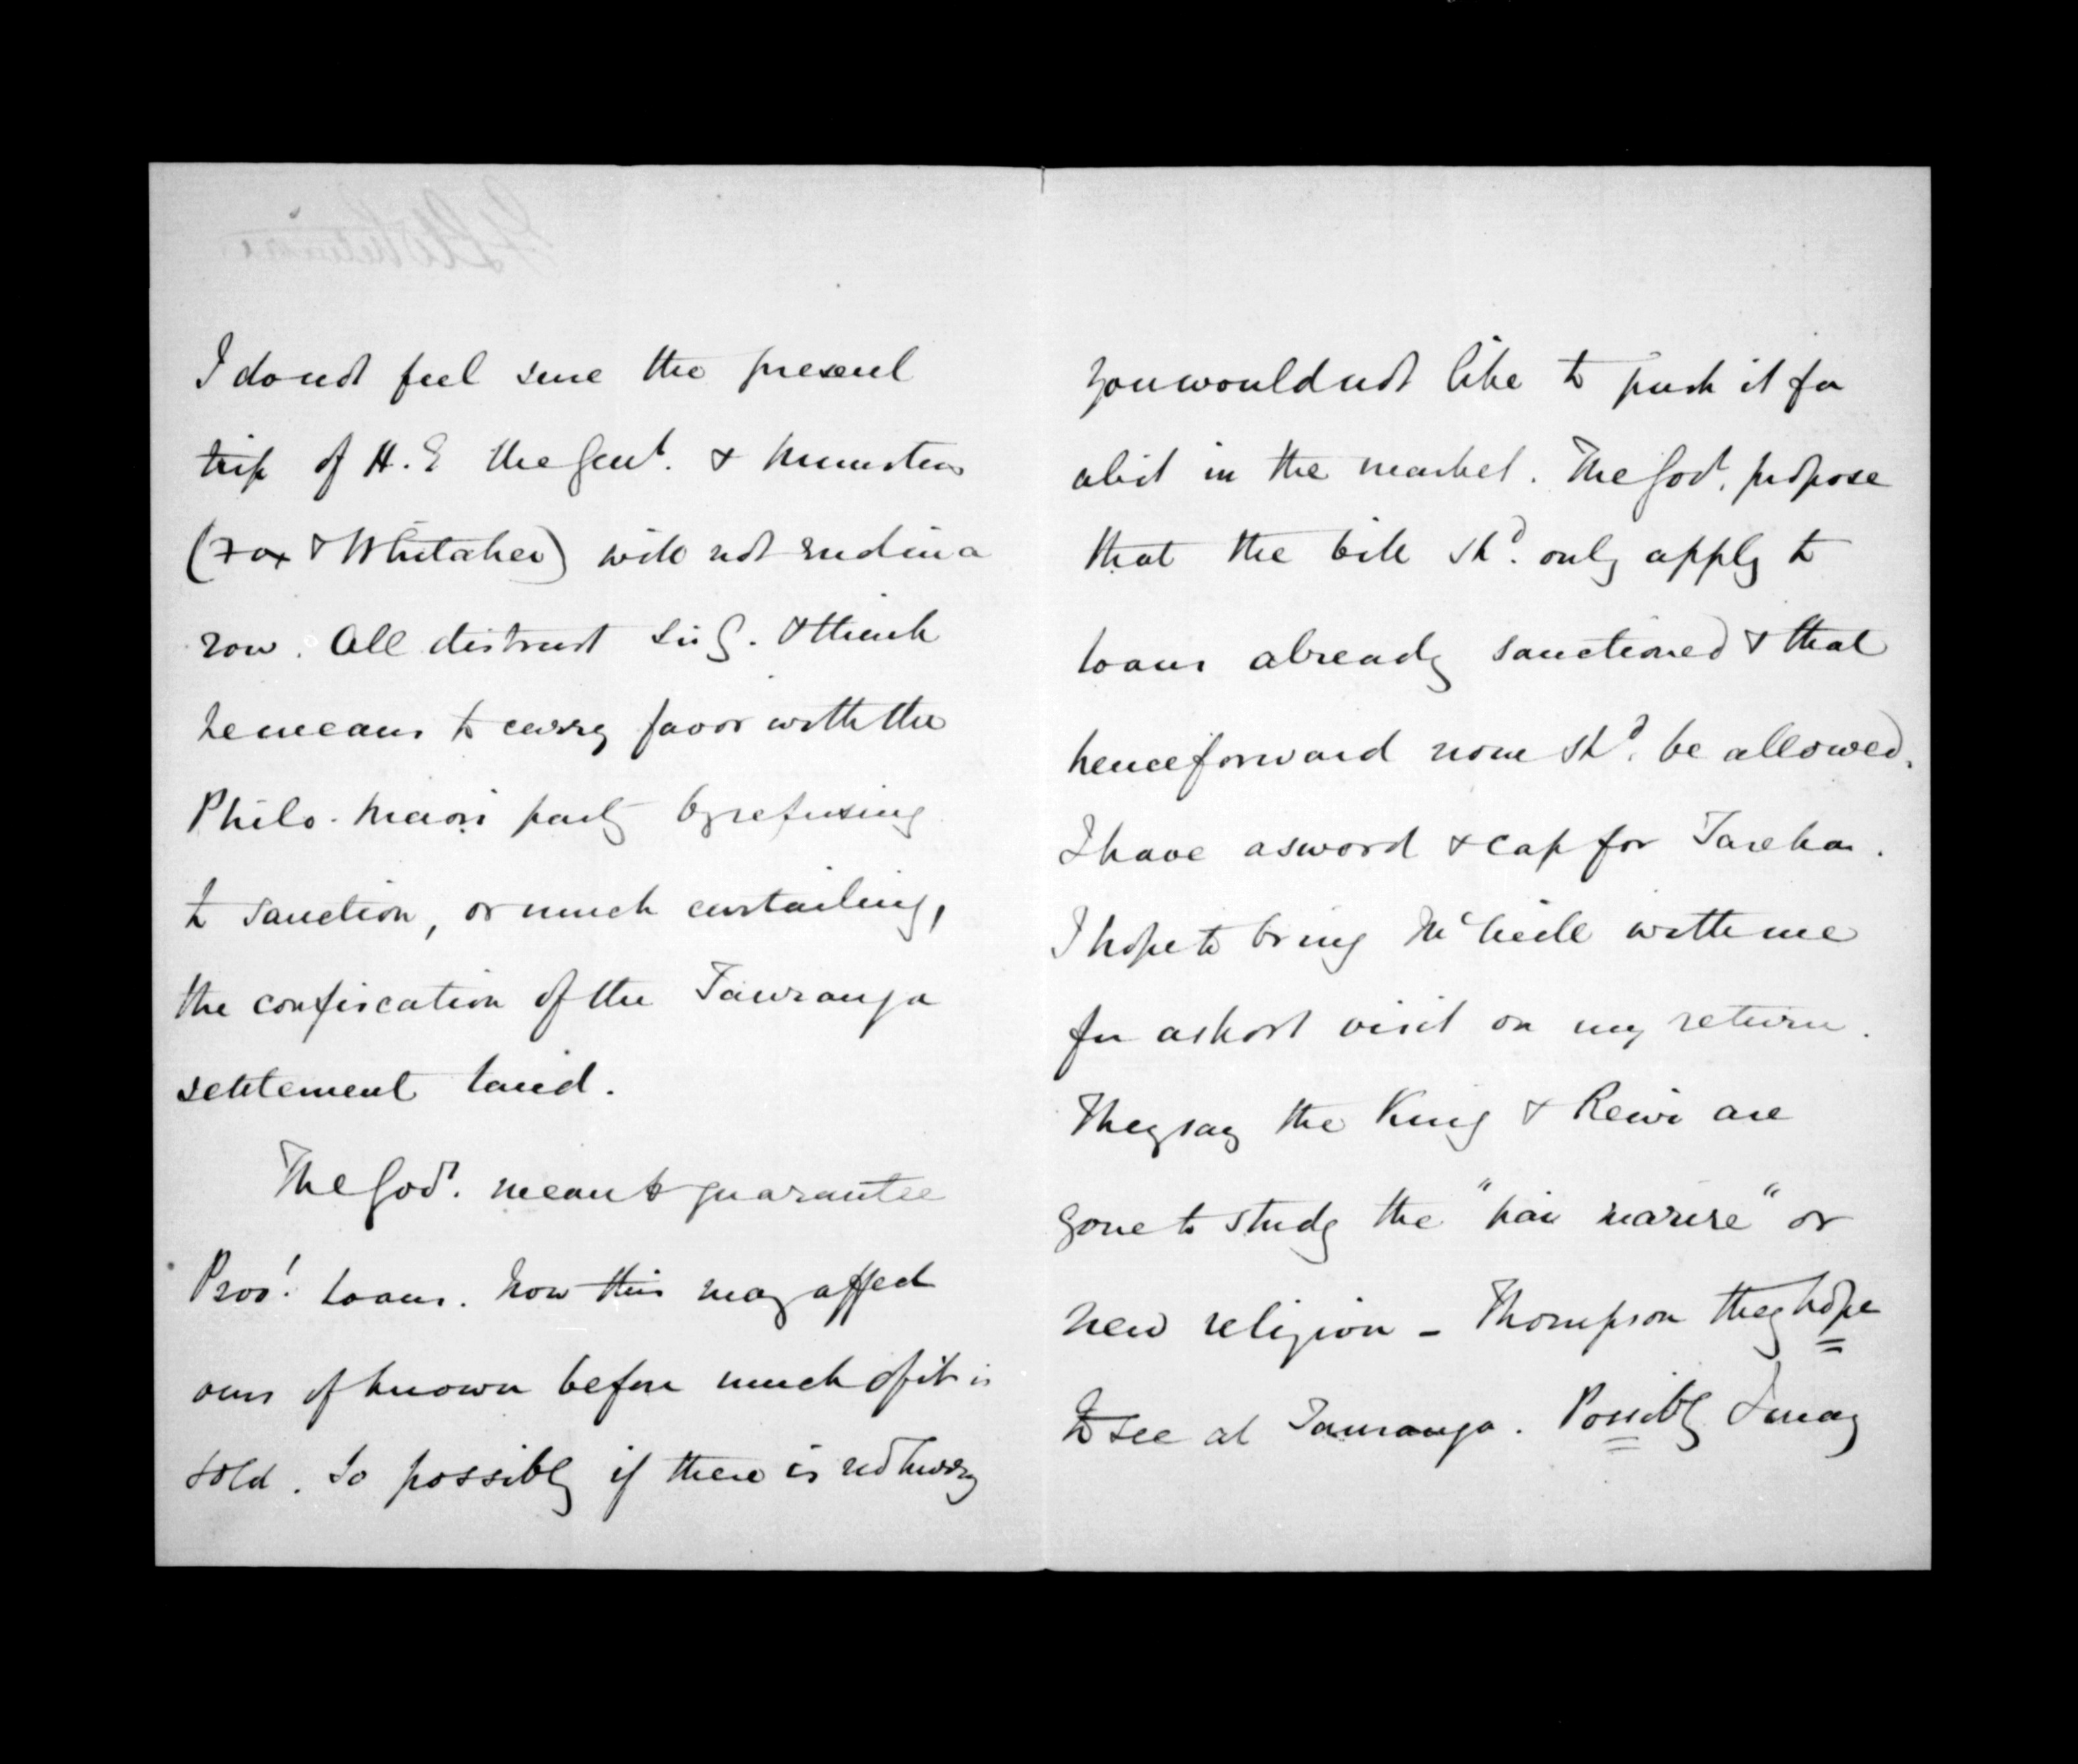 I do not feel sure the present
trip of H. E the Genl. & Ministers
(Fox & Whitaker) will not end in a
row. All distrust Sir G. & think
he means to curry favor with the
Philo-Maori party by refusing
to sanction, or much curtailing,
the confiscation of the Tauranga
settlement land.
The Govt. mean to guarantee
Provl. Loans. How this may affect
ours if known before much of it is
sold. So possibly if there is no hurry
you would not like to push it for
a bit in the market. The Govt. propose
that the bill shd. only apply to
loans already sanctioned & that
henceforward none shd. be allowed.
I have a sword & cap for Tareha.
I hope to bring McNeill with me
for a short visit on my return.
They say the King & Rewi are
gone to study the "pai marire" or
new religion - Thompson they hope
to see at Tauranga. Possibly I may